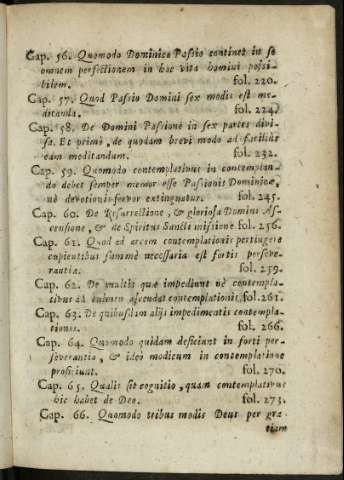 Cap. 56. Quomodo Dominica Passio continet in se
omnem perfectionem in hac vita homini possi-
bilem. fol. 220.
Cap. 57. Quod Passio Domini sex modis est me-
ditanda. fol. 224.
Cap. 58. De Domini Passione in sex partes divi-
sa. Et primò, de quodam brevi modo ad facilius
eam meditandum. fol. 232.
Cap. 59. Quomodo contemplativus in contemplan-
do debet semper memor esse Passionis Dominicæ,
ut devotionis fervor extinguatur. fol. 245.
Cap. 60. De Resurrectione, & gloriosa Domini As-
censione, & de Spiritus Sancti missione. fol. 256.
Cap. 61. Quod ad arcem contemplationis pertingere
cupientibus summè necessaria est fortis perseve-
rantia. fol. 259.
Cap. 62. De multis quæ impediunt ne contempla-
tivus ad culmen ascendat contemplationis. fol. 261.
Cap. 63. De quibusdam alijs impedimentis contempla-
tionis. fol. 266.
Cap. 64. Quomodo quidam deficiunt in forti per-
severantia, & ideò modicum in contemplatione
proficiunt. fol. 270.
Cap. 65. Qualis sit cognitio, quam contemplativus
hic habet de Deo. fol. 273.
Cap. 66. Quomodo tribus modis Deus per gra-
tiam